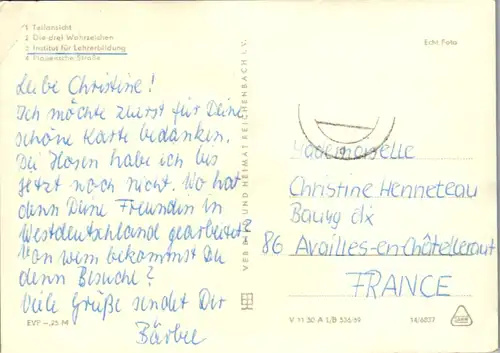 1 Teilansicht
2 Die drei Wahrzeichen
3 Institut für Lehrerbildung
4 Plauensche Straße
Echt Foto
Liebe Christine!
Ich möchte zuerst für Deine
schöne Karte bedanken.
Die Hosen habe ich bis
jetzt noch nicht. Wo hat
denn Deine Freundin in
Westdeutschland gearbeitet?
Von wem bekommst Du
denn Besuche?
Viele Grüße sendet Dir
Bärbel
EVP -,25 M
VEB UND HEIMAT REICHENBACH I. V.
Mademoiselle
Christine Henneteau
86 Availles-en-Châtelleraut
FRANCE
V 11 30 A 1/B 536/69
14/6827